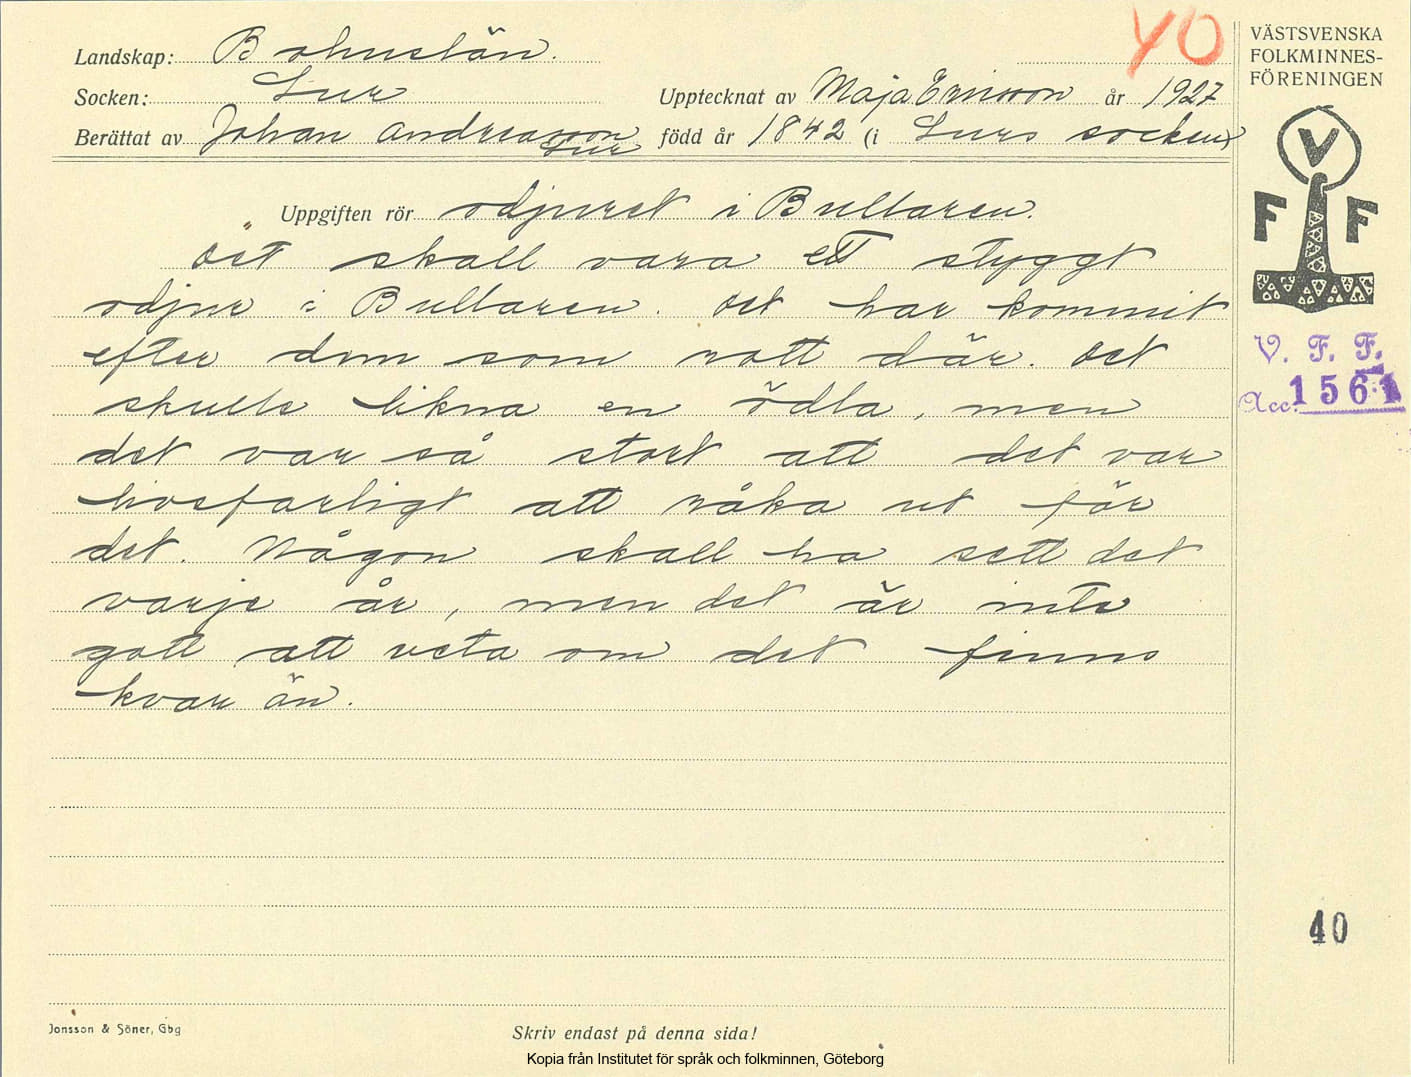 YO
Landskap: Bohuslän.
Socken: Lur
Upptecknat av Maja Ericson år 1927
Berättat av Johan Andreasson
Lur
född år 1842 (i Lurs socken)
Uppgiften rör odjuret i Bullaren.
"Det skall vara ett styggt
odjur i Bullaren. Det har kommit
efter dem som rott där. Det
skulle likna en ödla, men
det var så stort att det var
livsfarligt att råka ut för
det. Någon skall ha sett det
varje år, men det är inte
gott att veta om det finns
kvar än.
VÄSTSVENSKA
FOLKMINNES-
FÖRENINGEN
V
F F
V. F. F.
Acc. 1561
40
Jonsson & Söner, Gbg
Skriv endast på denna sida!
Kopia från Institutet för språk och folkminnen, Göteborg